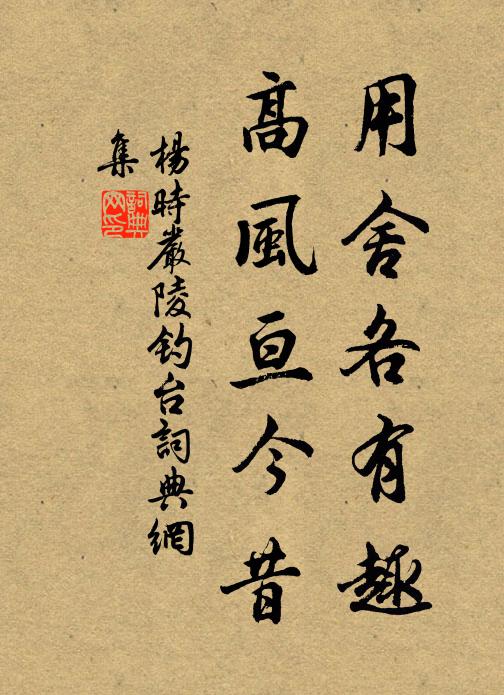 用舍各有趣
高風亘今昔
楊時嚴陵釣台詞典網
集
詞典網印